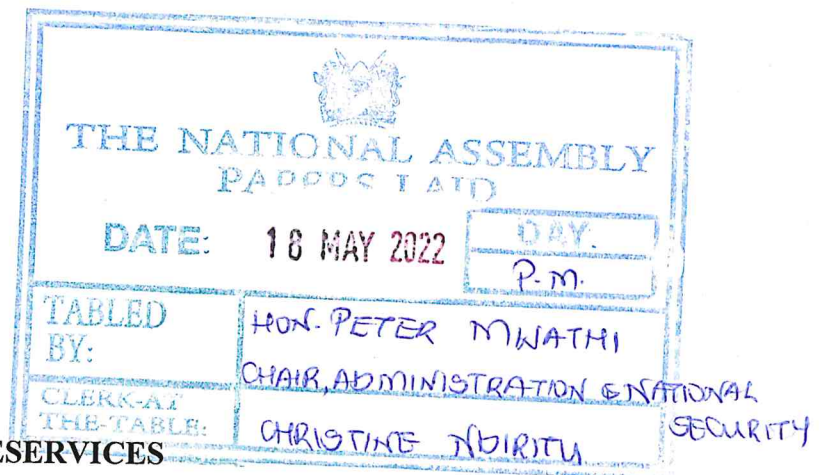 THE NATIONAL ASSEMBLY
PAPERS LAID
DATE: 18 MAY 2022 DAY:
P.M.
TABLED BY: HON. PETER MWATHI
CHAIR, ADMINISTRATION & NATIONAL SECURITY
CLERK-AT THE-TABLE: CHRISTINE NDIRITU
ESERVICES